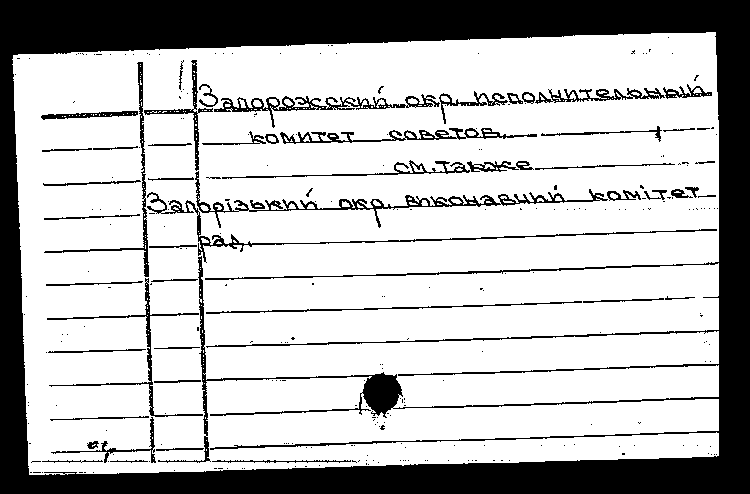 Запорожский окр. исполнительный
комитет советов.
см. также
Запорізький окр. виконавчий комітет
рад.